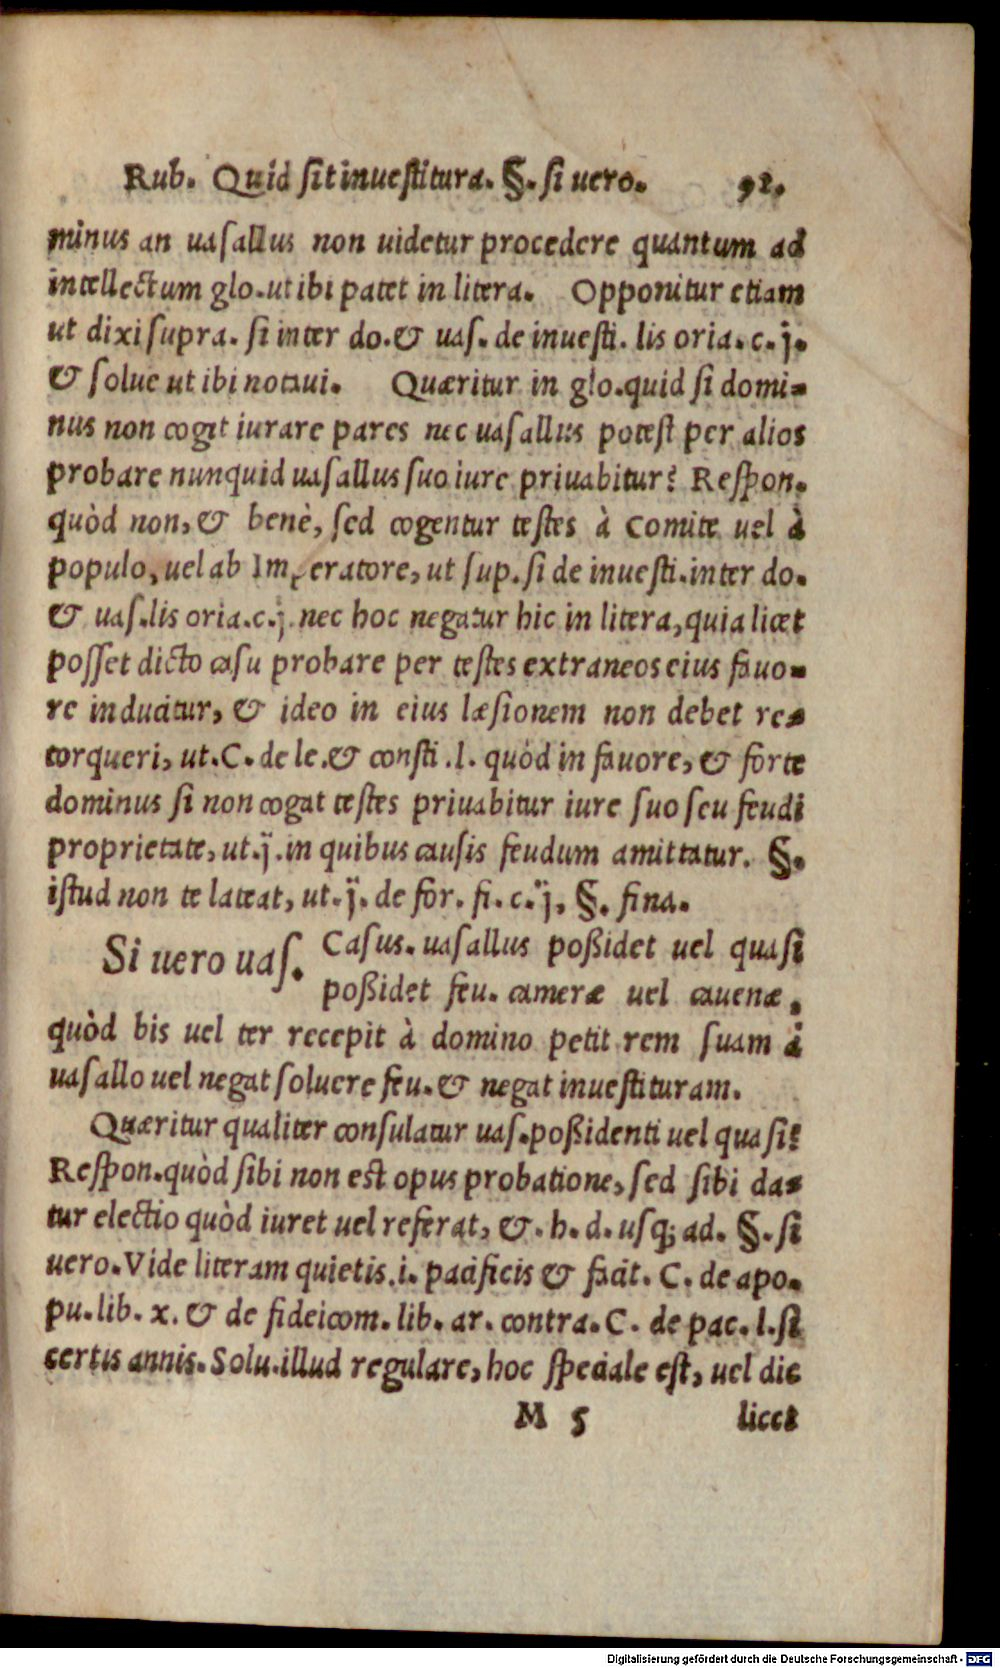 Rub. Quid sit inuestitura. §. si uero. 92.
minus an uasallus non uidetur procedere quantum ad
intellectum glo. ut ibi patet in litera. Opponitur etiam
ut dixi supra. si inter do. & uas. de inuesti. lis oria. c. j.
& solue ut ibi notaui. Quæritur in glo. quid si domi-
nus non cogit iurare pares nec uasallus potest per alios
probare nunquid uasallus suo iure priuabitur? Respon.
quòd non, & benè, sed cogentur testes à Comite uel à
populo, uel ab Imperatore, ut sup. si de inuesti. inter do.
& uas. lis oria. c. j. nec hoc negatur hic in litera, quia licet
posset dicto casu probare per testes extraneos eius fauo-
re inducitur, & ideo in eius læsionem non debet re-
torqueri, ut. C. de le. & consti. l. quòd in fauore, & forte
dominus si non cogat testes priuabitur iure suo seu feudi
proprietate, ut. j. in quibus causis feudum amittatur. §.
istud non te lateat, ut. j. de for. fi. c. ij. §. fina.
Si uero uas. Casus. uasallus poßidet uel quasi
poßidet feu. cameræ uel cauenæ,
quòd bis uel ter recepit à domino petit rem suam à
uasallo uel negat soluere feu. & negat inuestituram.
Quæritur qualiter consulatur uas. poßidenti uel quasi?
Respon. quòd sibi non est opus probatione, sed sibi da-
tur electio quòd iuret uel referat, &. h. d. usq; ad. §. si
uero. Vide literam quietis. i. pacificis & facit. C. de apo.
pu. lib. x. & de fideicom. lib. ar. contra. C. de pac. l. si
certis annis. Solu. illud regulare, hoc speciale est, uel dic
M 5 licet
Digitalisierung gefördert durch die Deutsche Forschungsgemeinschaft - DFG